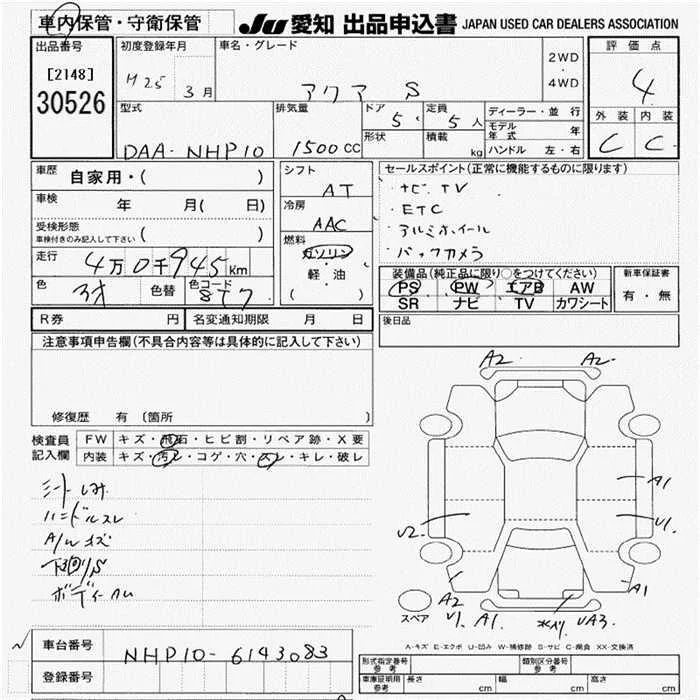 車内保管・守衛保管
JU 愛知 出品申込書 JAPAN USED CAR DEALERS ASSOCIATION
出品番号
[2148]
30526
初度登録年月
H25 3月
車名・グレード
アクア S
2WD
・
4WD
評価点
4
外装 内装
C C
型式
DAA-NHP10
排気量
1500CC
ドア
5
定員
5人
形状
積載
kg
ディーラー・並行
モデル年式 年
ハンドル 左・右
車歴
自家用・( )
車検
年 月( 日)
受検形態
車検付きのみ記入して下さい ( )
走行
4万0千945Km
色
色替
色コード
8T7
シフト
AT
冷房
AAC
燃料
ガソリン
・
軽・油
( )
セールスポイント(正常に機能するものに限ります)
ナビ、TV
・ETC
・アルミホイール
・バックカメラ
装備品(純正品に限り○をつけてください)
PS PW エアB AW
SR ナビ TV カワシート
新車保証書
有・無
R券 円
名変通知期限 月 日
後日品
注意事項申告欄(不具合内容等は具体的に記入して下さい)
修復歴 有 〔箇所
検査員
記入欄
FW キズ・飛石・ヒビ割・リペア跡・X要
内装 キズ・汚レ・コゲ・穴・スレ・キレ・破レ
シートしみ
ハンドルスレ
A/Wキズ
下回りS
A2 A2
A1
U2
U1
A1
A2
U1 A1 UA3
スペア
A-キズ E-エクボ U-凹み W-補修跡 S-サビ C-腐食 XX-交換済
車台番号
NHP10-6143083
登録番号
形式指定番号
参考
類別区分番号
参考
車庫証明用
参考
長さ cm
幅 cm
高さ cm